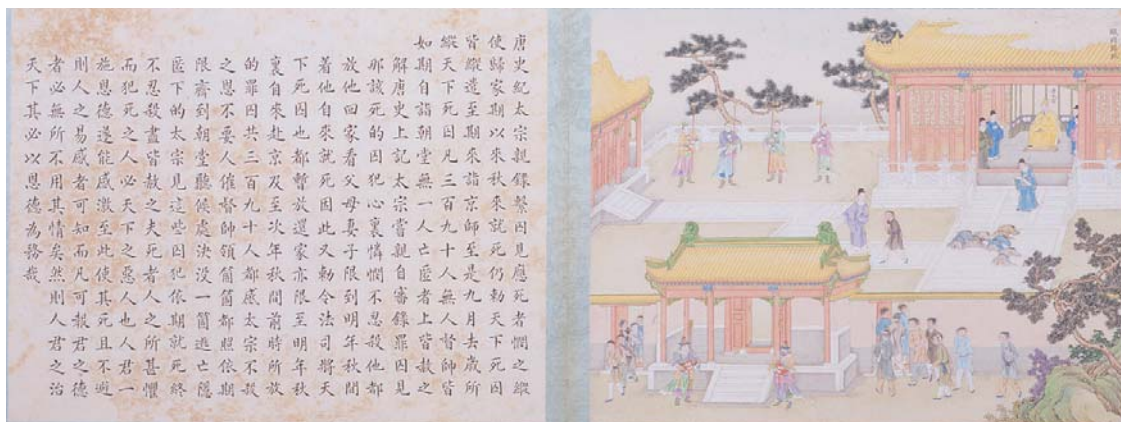 縱囚歸獄
唐史紀太宗親錄繫囚見應死者憫之縱
使歸家期以來秋來就死仍勅天下死囚
皆縱遣至期來詣京師至是九月去歲所
縱天下死囚凡三百九十人無人督帥皆
如期自詣朝堂無一人亡匿者上皆赦之
解唐史上記太宗嘗親自審錄罪囚見
那該死的囚犯心裏憐憫不忍殺他都
放他回家看父母妻子限到明年秋間
着他自來就死因此又勅令法司將天
下死囚也都暫放還家亦限至明年秋
裏自來赴京及至次年秋間前時所放
的罪囚共三百九十人都感太宗不殺
之恩不要人催督帥領箇箇都照依期
限齊到朝堂聽候處決沒一箇逃亡隱
匿下的太宗見這些囚犯依期就死終
不忍殺盡皆赦之夫死者人之所甚懼
而犯死之人必天下之惡人也人君一
施恩德遂能感激至此使其死且不避
則人之易感者可知而凡可報君之德
者必無所不用其情矣然則人君之治
天下其必以恩德為務哉